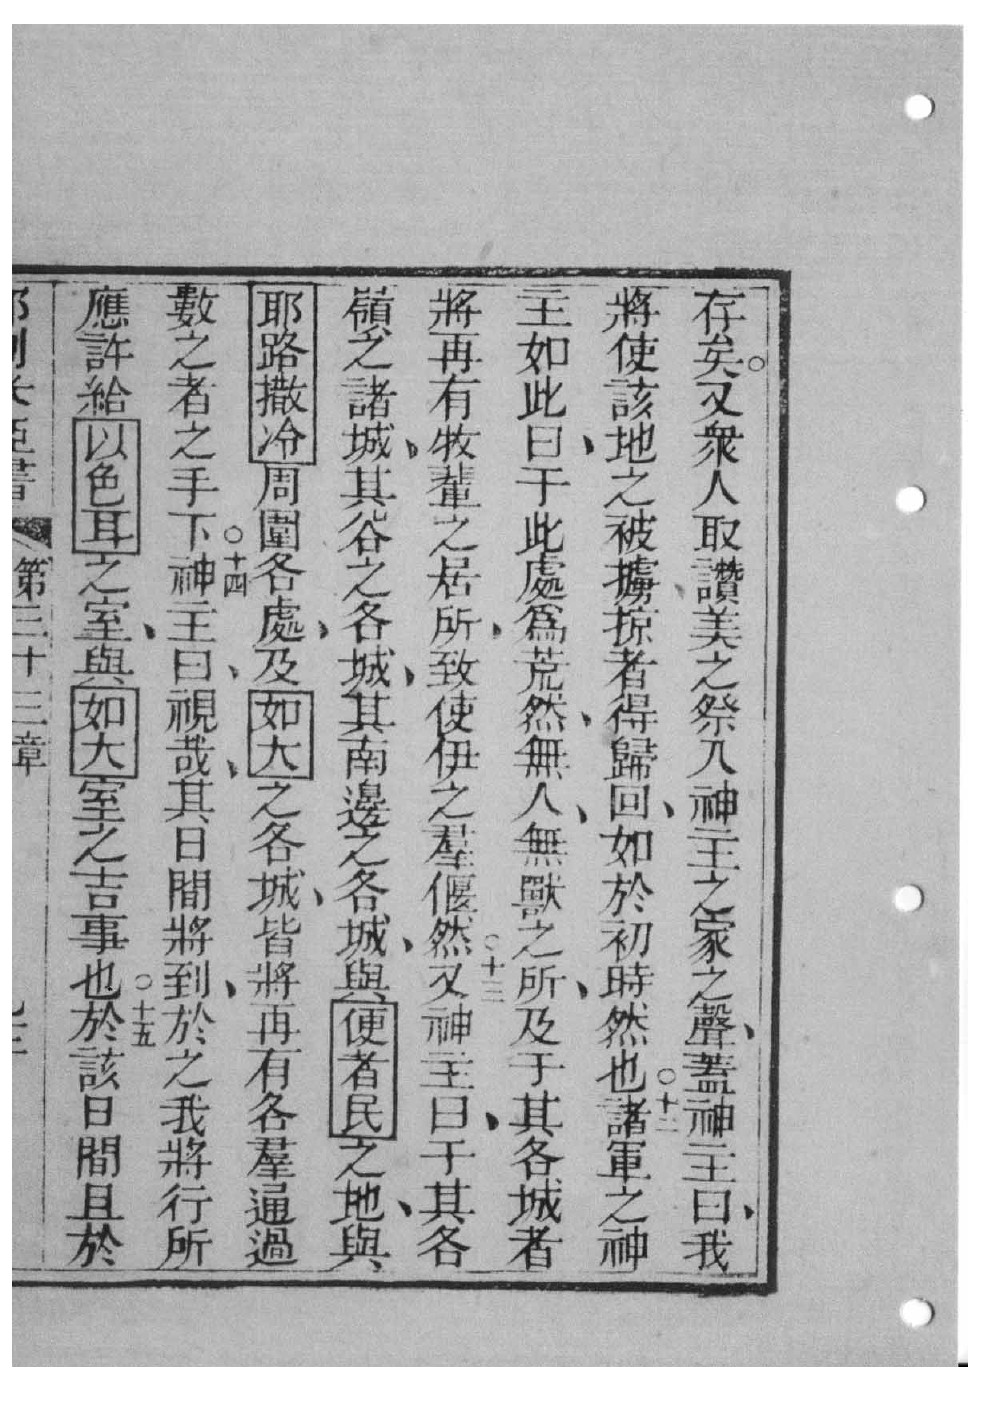 存矣。又衆人取讚美之祭入神主之家之聲、蓋神主曰、我
將使該地之被擄掠者得歸回、如於初時然也○十二諸軍之神
主如此曰、于此處爲荒然、無人、無獸之所、及于其各城者
將再有牧輩之居所、致使伊之羣偃然○十三又神主曰、于其各
嶺之諸城、其谷之各城、其南邊之各城、與便者民之地、與
耶路撒冷周圍各處、及如大之各城、皆將再有各羣逼過
數之者之手下○十四神主曰、視哉、其日間將到、於之我將行所
應許給以色耳之室、與如大室之吉事也○十五於該日間且於
第三十三章